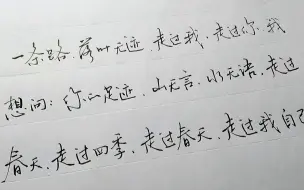 一条路.落叶无迹.走过我.走过你.我
想问:你的足迹.山无言.水无语.走过
春天.走过四季.走过春天.走过我自己